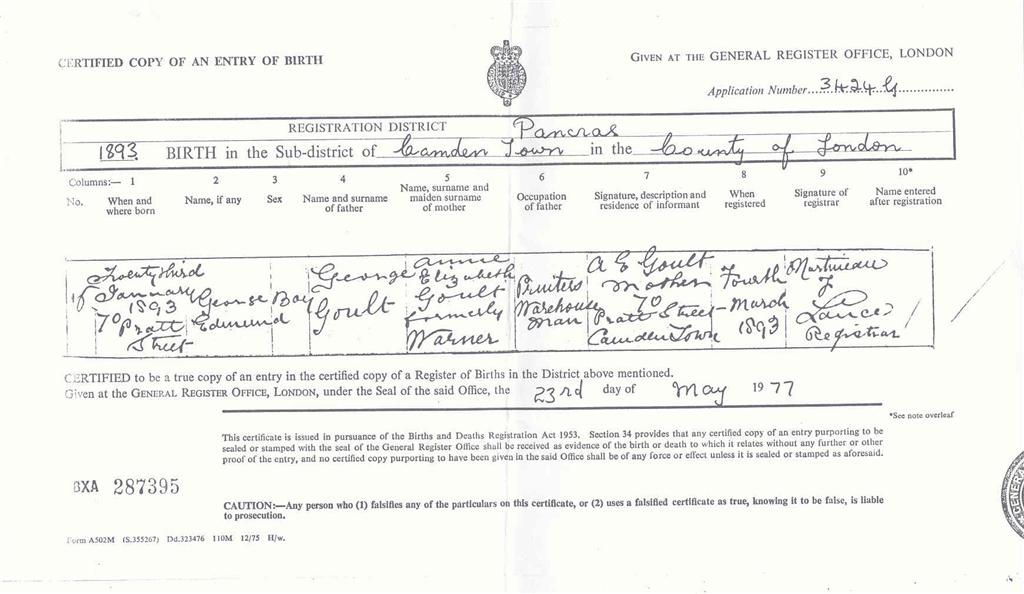 CERTIFIED COPY OF AN ENTRY OF BIRTH
GIVEN AT THE GENERAL REGISTER OFFICE, LONDON
Application Number 3424 G
REGISTRATION DISTRICT Pancras
1893 BIRTH in the Sub-district of Camden Town in the County of London
Columns:— 1 2 3 4 5 6 7 8 9 10*
No. When and where born
Name, if any
Sex
Name and surname of father
Name, surname and maiden surname of mother
Occupation of father
Signature, description and residence of informant
When registered
Signature of registrar
Name entered after registration
Twenty third
January
1893
70 Pratt
Street
George
Edmund
Boy
George
Goult
Annie
Elizabeth
Goult
formerly
Warner
Printers
Warehouse
man
A E Goult
Mother
70
Pratt Street
Camden Town
Fourth
March
1893
Martineau
Lance
Registrar
CERTIFIED to be a true copy of an entry in the certified copy of a Register of Births in the District above mentioned.
Given at the GENERAL REGISTER OFFICE, LONDON, under the Seal of the said Office, the 23rd day of May 1977
*See note overleaf
This certificate is issued in pursuance of the Births and Deaths Registration Act 1953. Section 34 provides that any certified copy of an entry purporting to be
sealed or stamped with the seal of the General Register Office shall be received as evidence of the birth or death to which it relates without any further or other
proof of the entry, and no certified copy purporting to have been given in the said Office shall be of any force or effect unless it is sealed or stamped as aforesaid.
BXA 287395
CAUTION:—Any person who (1) falsifies any of the particulars on this certificate, or (2) uses a falsified certificate as true, knowing it to be false, is liable
to prosecution.
Form A502M (S.355267) Dd.323476 110M 12/75 H/w.